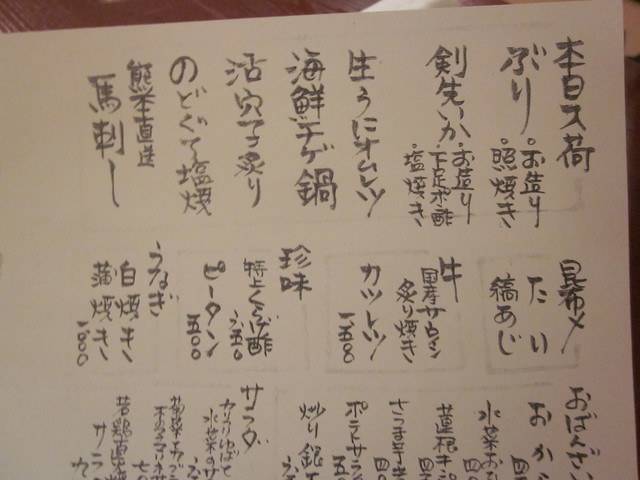 本日入荷
ぶり
・お造り
・照焼き
剣先いか
・お造り
・下足ポン酢
・塩焼き
生うにオムレツ
海鮮チゲ鍋
活穴子炙り
のどぐろ塩焼
熊本直送
馬刺し
昆布〆
たい
縞あじ
牛
国産サーロイン
炙り焼き
カツレツ
一五〇〇
珍味
特上くらげ酢
六五〇
ピータン
五〇〇
うなぎ
白焼き
蒲焼き
一八〇〇
おばんざい
おから
水菜お
蓮根キ
さつま芋
ポテトサラ
五〇
炒り銀
サラダ
水菜のサ
若鶏直火焼
サラ